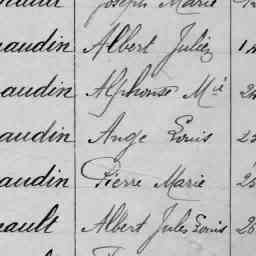 Joseph Marie
audin Albert Julien
audin Alphonse Mie
audin Ange Louis
audin Pierre Marie
ault Albert Jules Louis